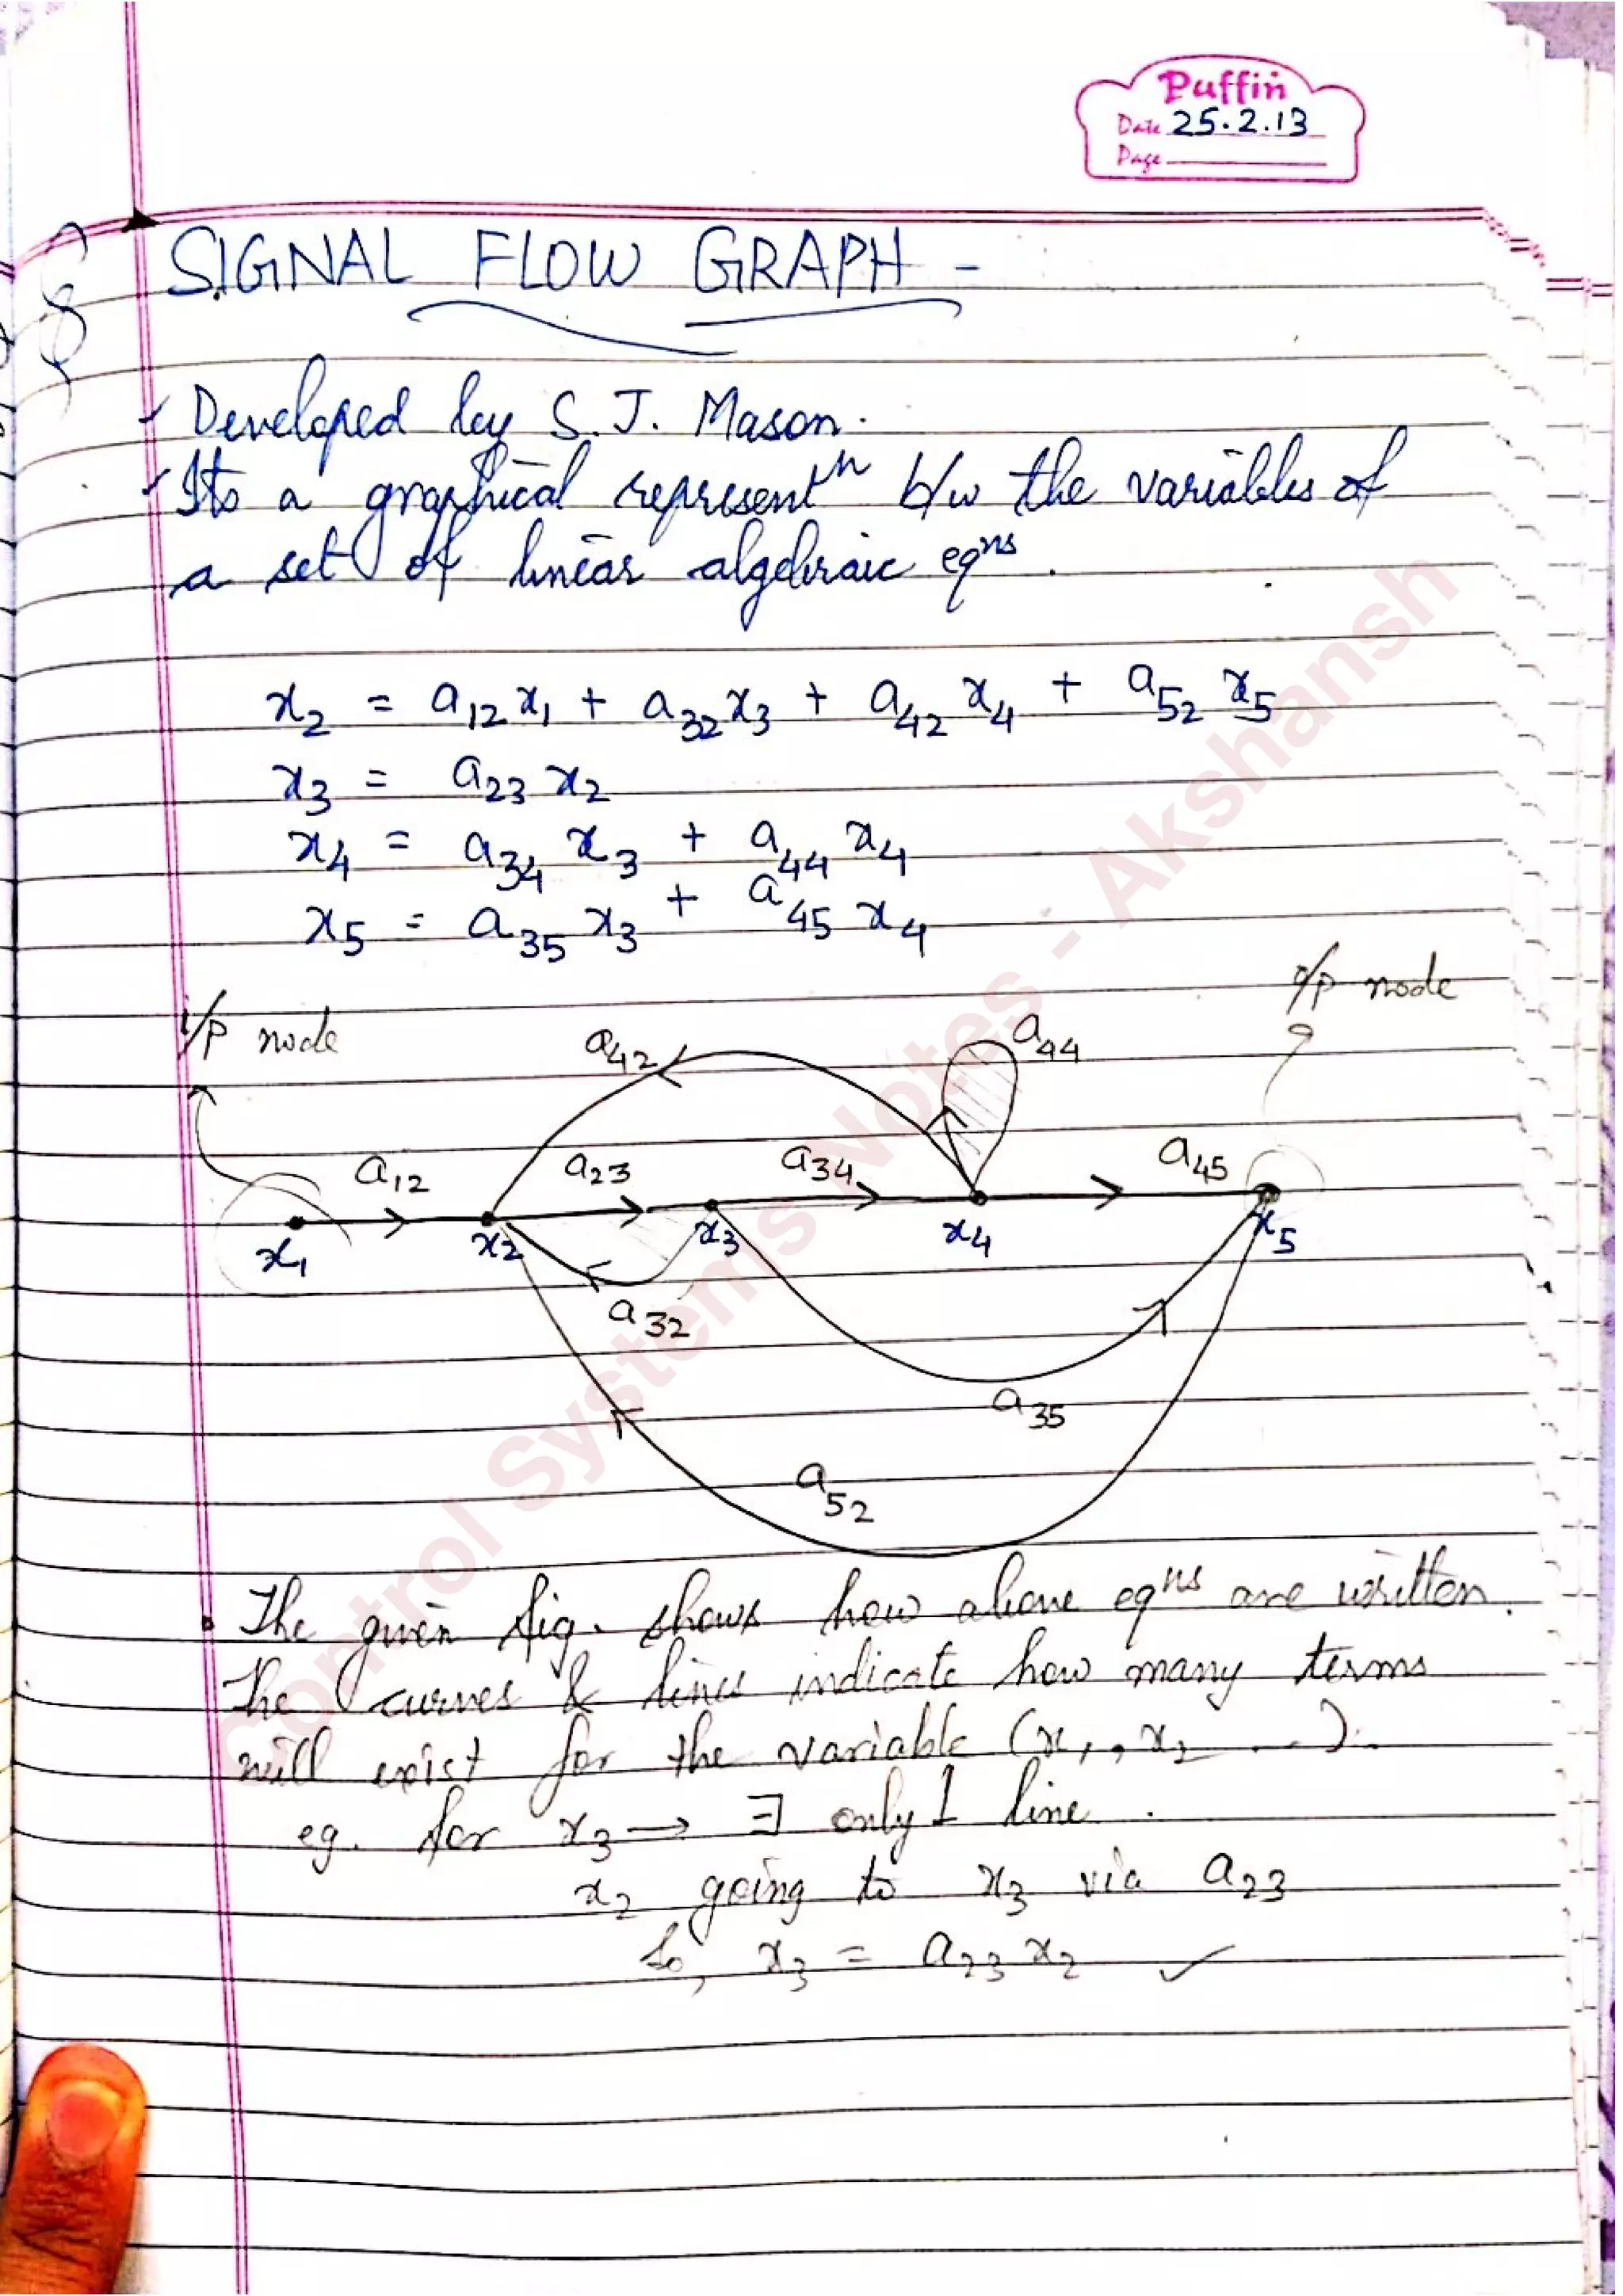 Puffin
Date 25.2.13
Page
SIGNAL FLOW GRAPH -
Developed by S. J. Mason.
Its a graphical representⁿ b/w the variables of
a set of linear algebraic eqⁿˢ.
x₂ = a₁₂x₁ + a₃₂x₃ + a₄₂x₄ + a₅₂x₅
x₃ = a₂₃x₂
x₄ = a₃₄x₃ + a₄₄x₄
x₅ = a₃₅x₃ + a₄₅x₄
i/p node
o/p node
a₄₂
a₄₄
a₁₂
a₂₃
a₃₄
a₄₅
x₁
x₂
x₃
x₄
x₅
a₃₂
a₃₅
a₅₂
• The given fig. shows how above eqⁿˢ are written.
The curves & lines indicate how many terms
will exist for the variable (x₁, x₂ ---).
eg. for x₃ → ∃ only 1 line.
x₂ going to x₃ via a₂₃
So, x₃ = a₂₃x₂ ✓
Control Systems Notes - Akshansh